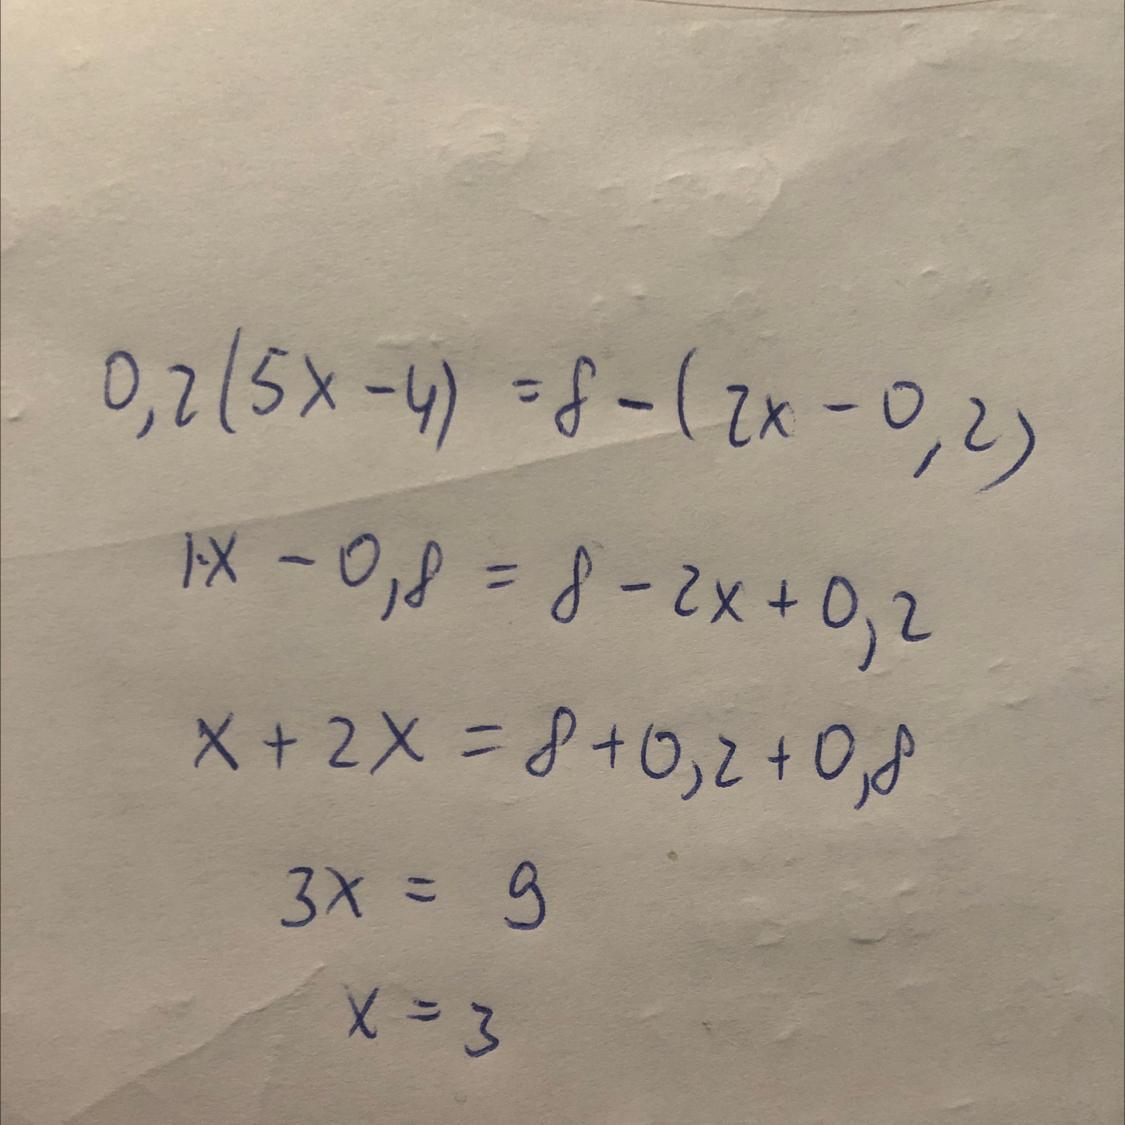 0,2(5x-4) = 8 - (2x - 0,2)
1·x - 0,8 = 8 - 2x + 0,2
x + 2x = 8 + 0,2 + 0,8
3x = 9
x = 3